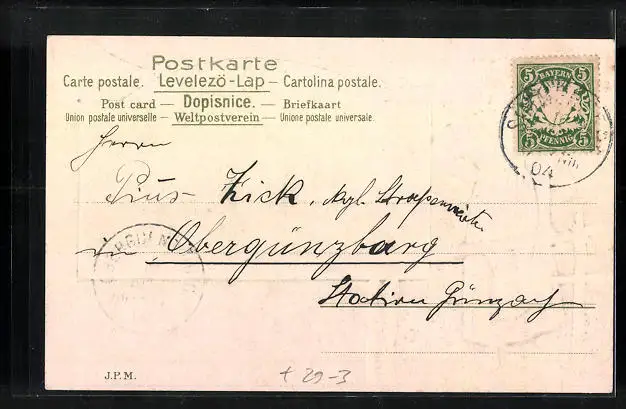 Postkarte
Carte postale. Levelezö-Lap – Cartolina postale.
Post card – Dopisnice. – Briefkaart
Union postale universelle – Weltpostverein – Unione postale universale.
5 BAYERN 5
5 PFENNIG 5
04
Herrn
Pius Zick, kgl. Straßenwärter
in Obergünzburg
Station Günzach
J.P.M.
+ 29-3